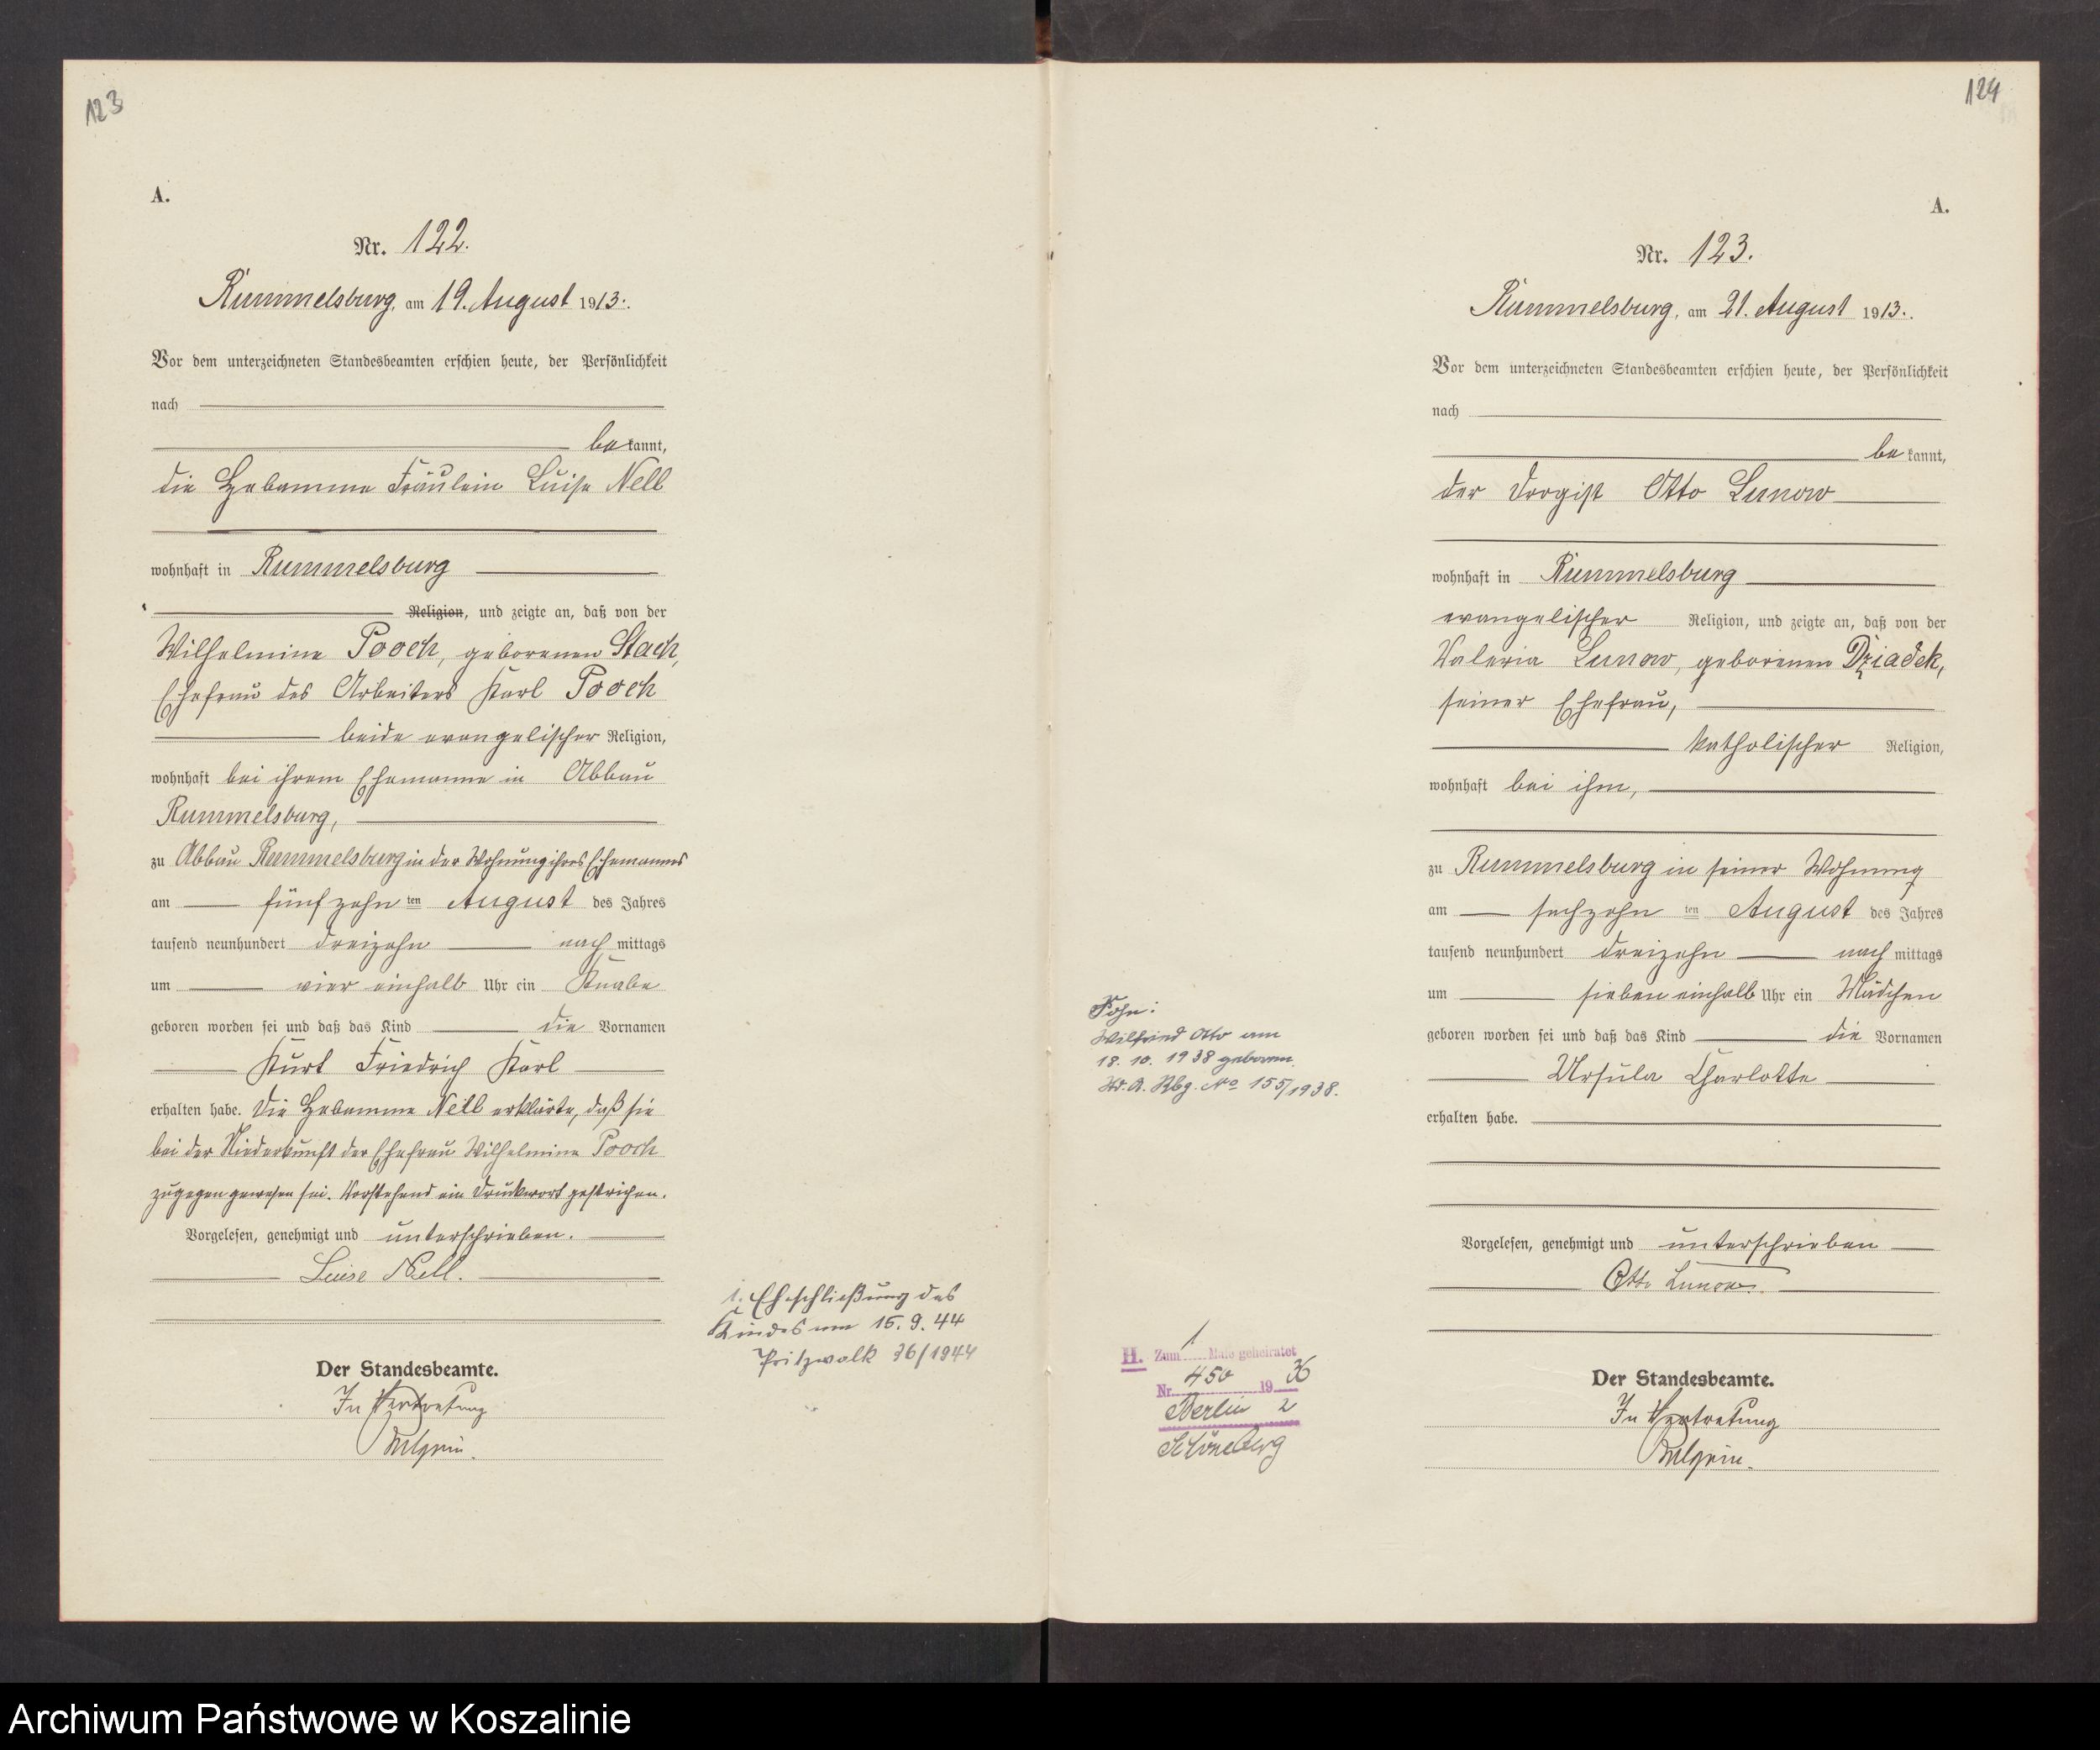 123
A.
Nr. 122.
Rummelsburg, am 19. August 1913.
Vor dem unterzeichneten Standesbeamten erschien heute, der Persönlichkeit
nach
bekannt,
die Hebamme Fräulein Luise Nell
wohnhaft in Rummelsburg
Religion, und zeigte an, daß von der
Wilhelmine Pooch, geborenen Stach,
Ehefrau des Arbeiters Karl Pooch
beide evangelischer Religion,
wohnhaft bei ihrem Ehemanne in Abbau
Rummelsburg,
zu Abbau Rummelsburg in der Wohnung ihres Ehemannes
am fünfzehn ten August des Jahres
tausend neunhundert dreizehn nachmittags
um vier einhalb Uhr ein Knabe
geboren worden sei und daß das Kind die Vornamen
Kurt Friedrich Karl
erhalten habe. Die Hebamme Nell erklärte, daß sie
bei der Niederkunft der Ehefrau Wilhelmine Pooch
zugegen gewesen sei. Vorstehend ein Druckwort gestrichen.
Vorgelesen, genehmigt und unterschrieben.
Luise Nell.
Der Standesbeamte.
In Vertretung
1. Eheschließung des
Kindes am 15. 9. 44
Pritzwalk 36/1944
124
A.
Nr. 123.
Rummelsburg, am 21. August 1913.
Vor dem unterzeichneten Standesbeamten erschien heute, der Persönlichkeit
nach
bekannt,
der Drogist Otto Lunow
wohnhaft in Rummelsburg
evangelischer Religion, und zeigte an, daß von der
Valeria Lunow, geborenen Dziadek,
seiner Ehefrau,
katholischer Religion,
wohnhaft bei ihm,
zu Rummelsburg in seiner Wohnung
am sechzehn ten August des Jahres
tausend neunhundert dreizehn nachmittags
um sieben einhalb Uhr ein Mädchen
geboren worden sei und daß das Kind die Vornamen
Ursula Charlotte
erhalten habe.
Vorgelesen, genehmigt und unterschrieben
Otto Lunow.
Der Standesbeamte.
In Vertretung
Sohn:
Wilfried Otto am
18. 10. 1938 geboren.
St. A. Rbg. No 155/1938.
H. Zum 1 Male geheiratet
Nr. 450 1936
Berlin 2
Schöneberg
Archiwum Państwowe w Koszalinie